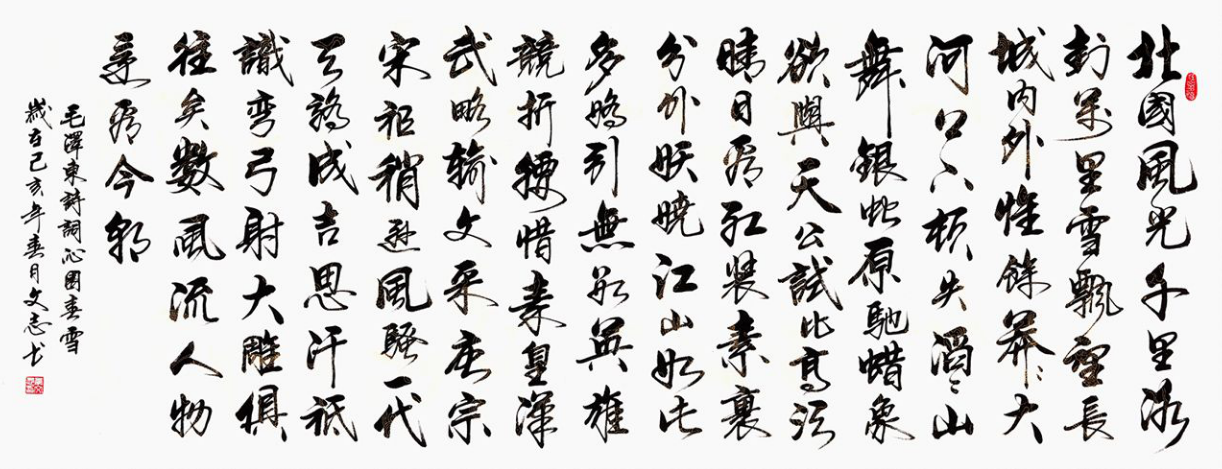 北國風光千里冰
封萬里雪飄望長
城内外惟餘莽〻大
河上下頓失滔〻山
舞銀蛇原馳蜡象
欲與天公試比高须
晴日看红装素裹
分外妖娆江山如此
多嬌引無數英雄
競折腰惜秦皇漢
武略输文采唐宗
宋祖稍遜風騷一代
天驕成吉思汗祗
識弯弓射大雕俱
往矣數風流人物
還看今朝
毛澤東詩詞沁園春雪
歲在己亥年春月文志书